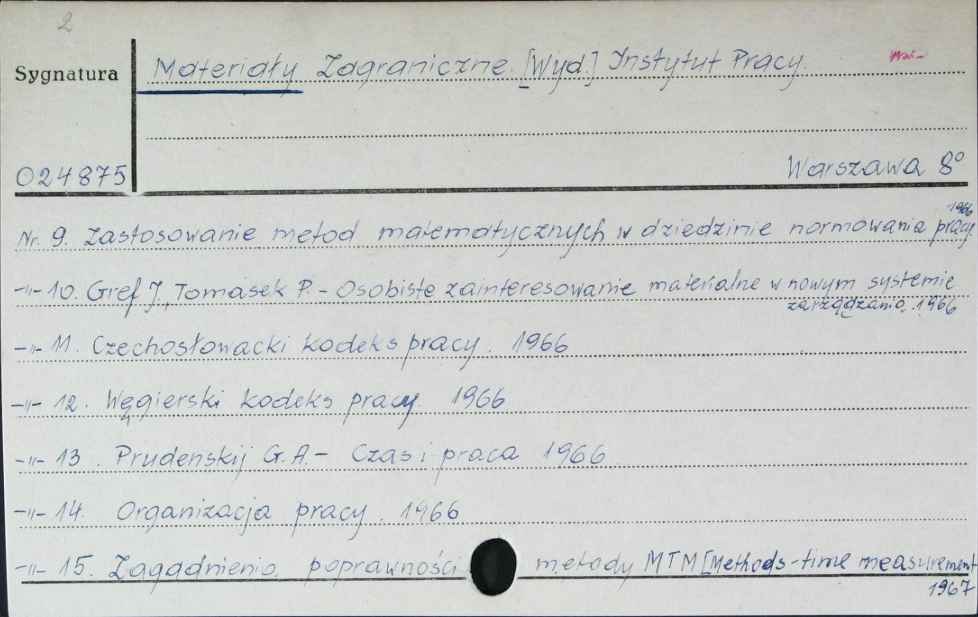 2
Sygnatura
Materiały Zagraniczne. [Wyd.] Instytut Pracy.
024875
Warszawa 8°
Nr. 9. Zastosowanie metod matematycznych w dziedzinie normowania pracy 1966
-"- 10. Gref J., Tomasek P. - Osobiste zainteresowanie materialne w nowym systemie
zarządzania. 1966
-"- 11. Czechosłowacki kodeks pracy. 1966
-"- 12. Węgierski kodeks pracy. 1966
-"- 13. Prudenskij G.A. - Czas i praca 1966
-"- 14. Organizacja pracy. 1966
-"- 15. Zagadnienia poprawności metody MTM [Methods-time measurement
1967